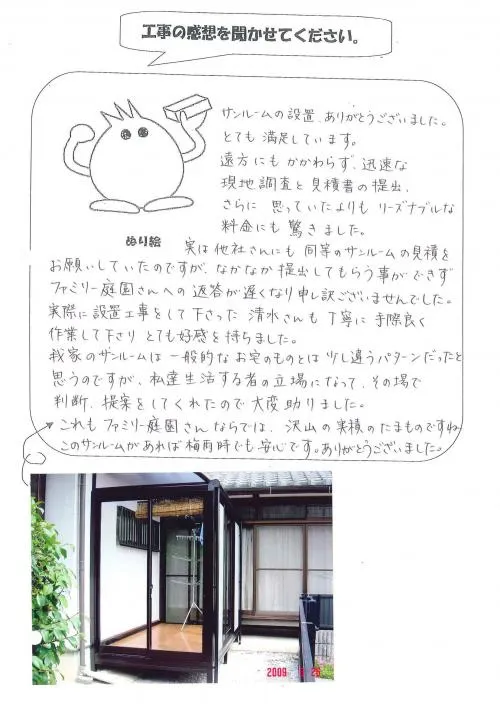 工事の感想を聞かせてください。
サンルームの設置、ありがとうございました。
とても満足しています。
遠方にもかかわらず、迅速な
現地調査と見積書の提出、
さらに 思っていたよりも リーズナブルな
料金にも 驚きました。
ぬり絵
実は他社さんにも 同等のサンルームの見積を
お願いしていたのですが、なかなか提出してもらう事ができず
ファミリー庭園さんへの 返答が遅くなり申し訳ございませんでした。
実際に設置工事をして下さった 清水さんも 丁寧に 手際良く
作業して下さり とても好感を持ちました。
我家のサンルームは 一般的な お宅のものとは 少し違うパターンだったと
思うのですが、私達生活する者の立場になって、その場で
判断、提案をしてくれたので大変助かりました。
これも ファミリー庭園さん ならでは、沢山の実積のたまものですね
このサンルームがあれば梅雨時でも安心です。ありがとうございました。
2009 26